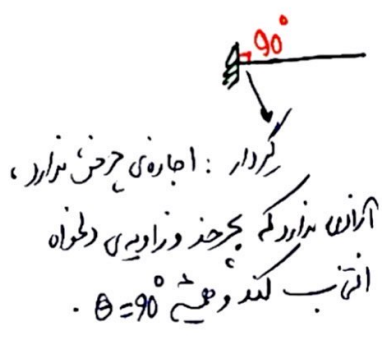 90°
گیردار : اجازه‌ی چرخش ندارد ،
آزادی ندارد که بچرخد و زاویه‌ی دلخواه
انتخاب کند و همیشه θ=90° .